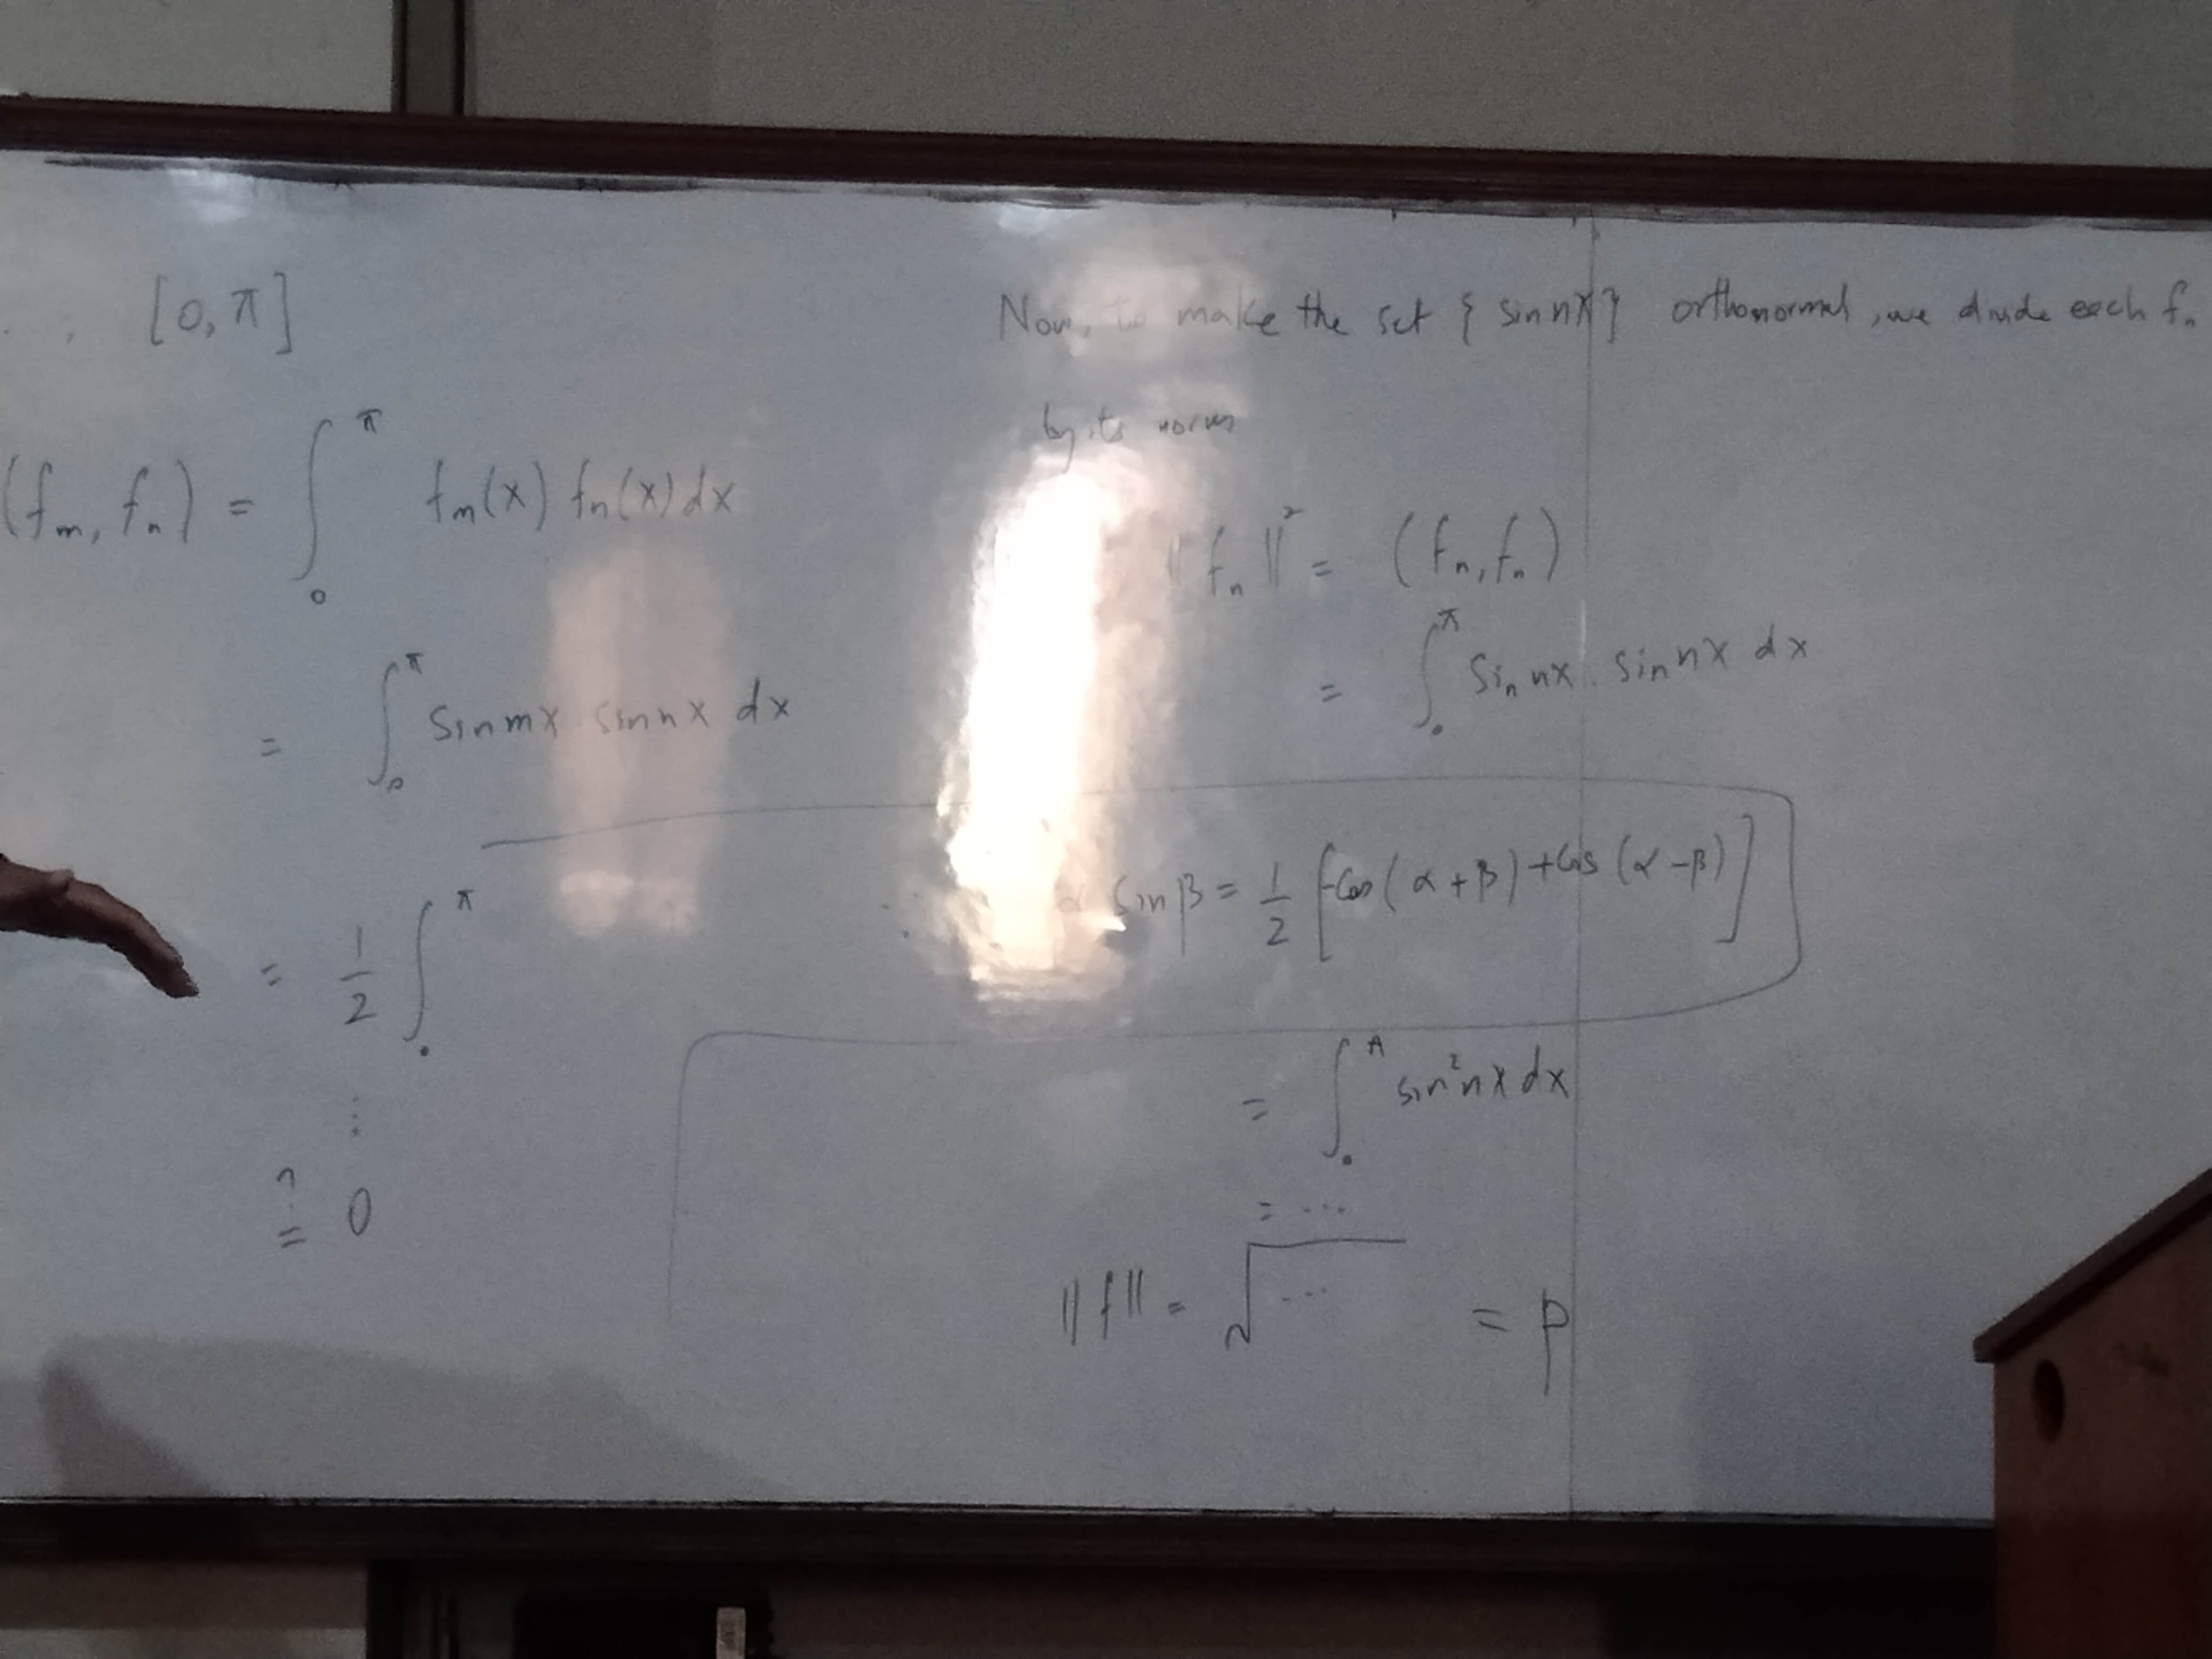 [0, π]
(fm, fn) = ∫₀^π fm(x) fn(x) dx
= ∫₀^π sin mx . sin nx dx
= 1/2 ∫₀^π
⋮
≟ 0
Now, to make the set { sin nx } orthonormal, we divide each fn
by its norm
‖fn‖² = (fn, fn)
= ∫₀^π sin nx . sin nx dx
α sin β = 1/2 [-cos(α+β) + cos(α-β)]
= ∫₀^π sin² nx dx
= ...
‖f‖ = √... = p